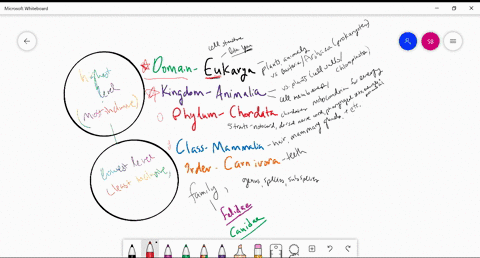 Microsoft Whiteboard
SG
cell structure
Domain - Eukarya
plants, animals
vs Bacteria/Archaea (prokaryotes)
Highest
level
(Most inclusive)
Kingdom - Animalia
vs plants (cell walls/
chloroplasts)
cell membranes
Phylum - Chordata
mitochondria for energy
5 traits - notochord, dorsal nerve cord, pharyngeal
Class - Mammalia - hair, mammary glands, etc.
Lowest level
(least inclusive)
Order - Carnivora - teeth
family,
genus, species, subspecies
Felidae
Canidae